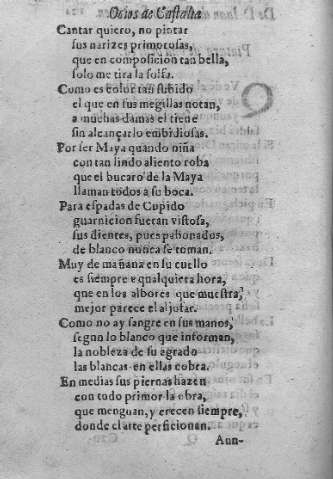 Ocios de Castalia
Cantar quiero, no pintar
sus narizes primorosas,
que en composicion tan bella,
solo me tira la solfa.
Como es color tan subido
el que en sus megillas notan,
a muchas damas el tiene
sin alcançarlo embidiosas.
Por ser Maya quando niña
con tan lindo aliento roba
que el bucaro de la Maya
llaman todos a su boca.
Para espadas de Cupido
guarnicion fueran vistosa,
sus dientes, pues pabonados,
de blanco nunca se toman.
Muy de mañana en su cuello
es siempre e qualquiera hora,
que en los albores que muestra,
mejor parece el aljofar.
Como no ay sangre en sus manos,
segun lo blanco que informan,
la nobleza de su agrado
las blancas en ellas cobra.
En medias sus piernas hazen
con todo primor la obra,
que menguan, y crecen siempre,
donde el arte perficionan.
Aun-